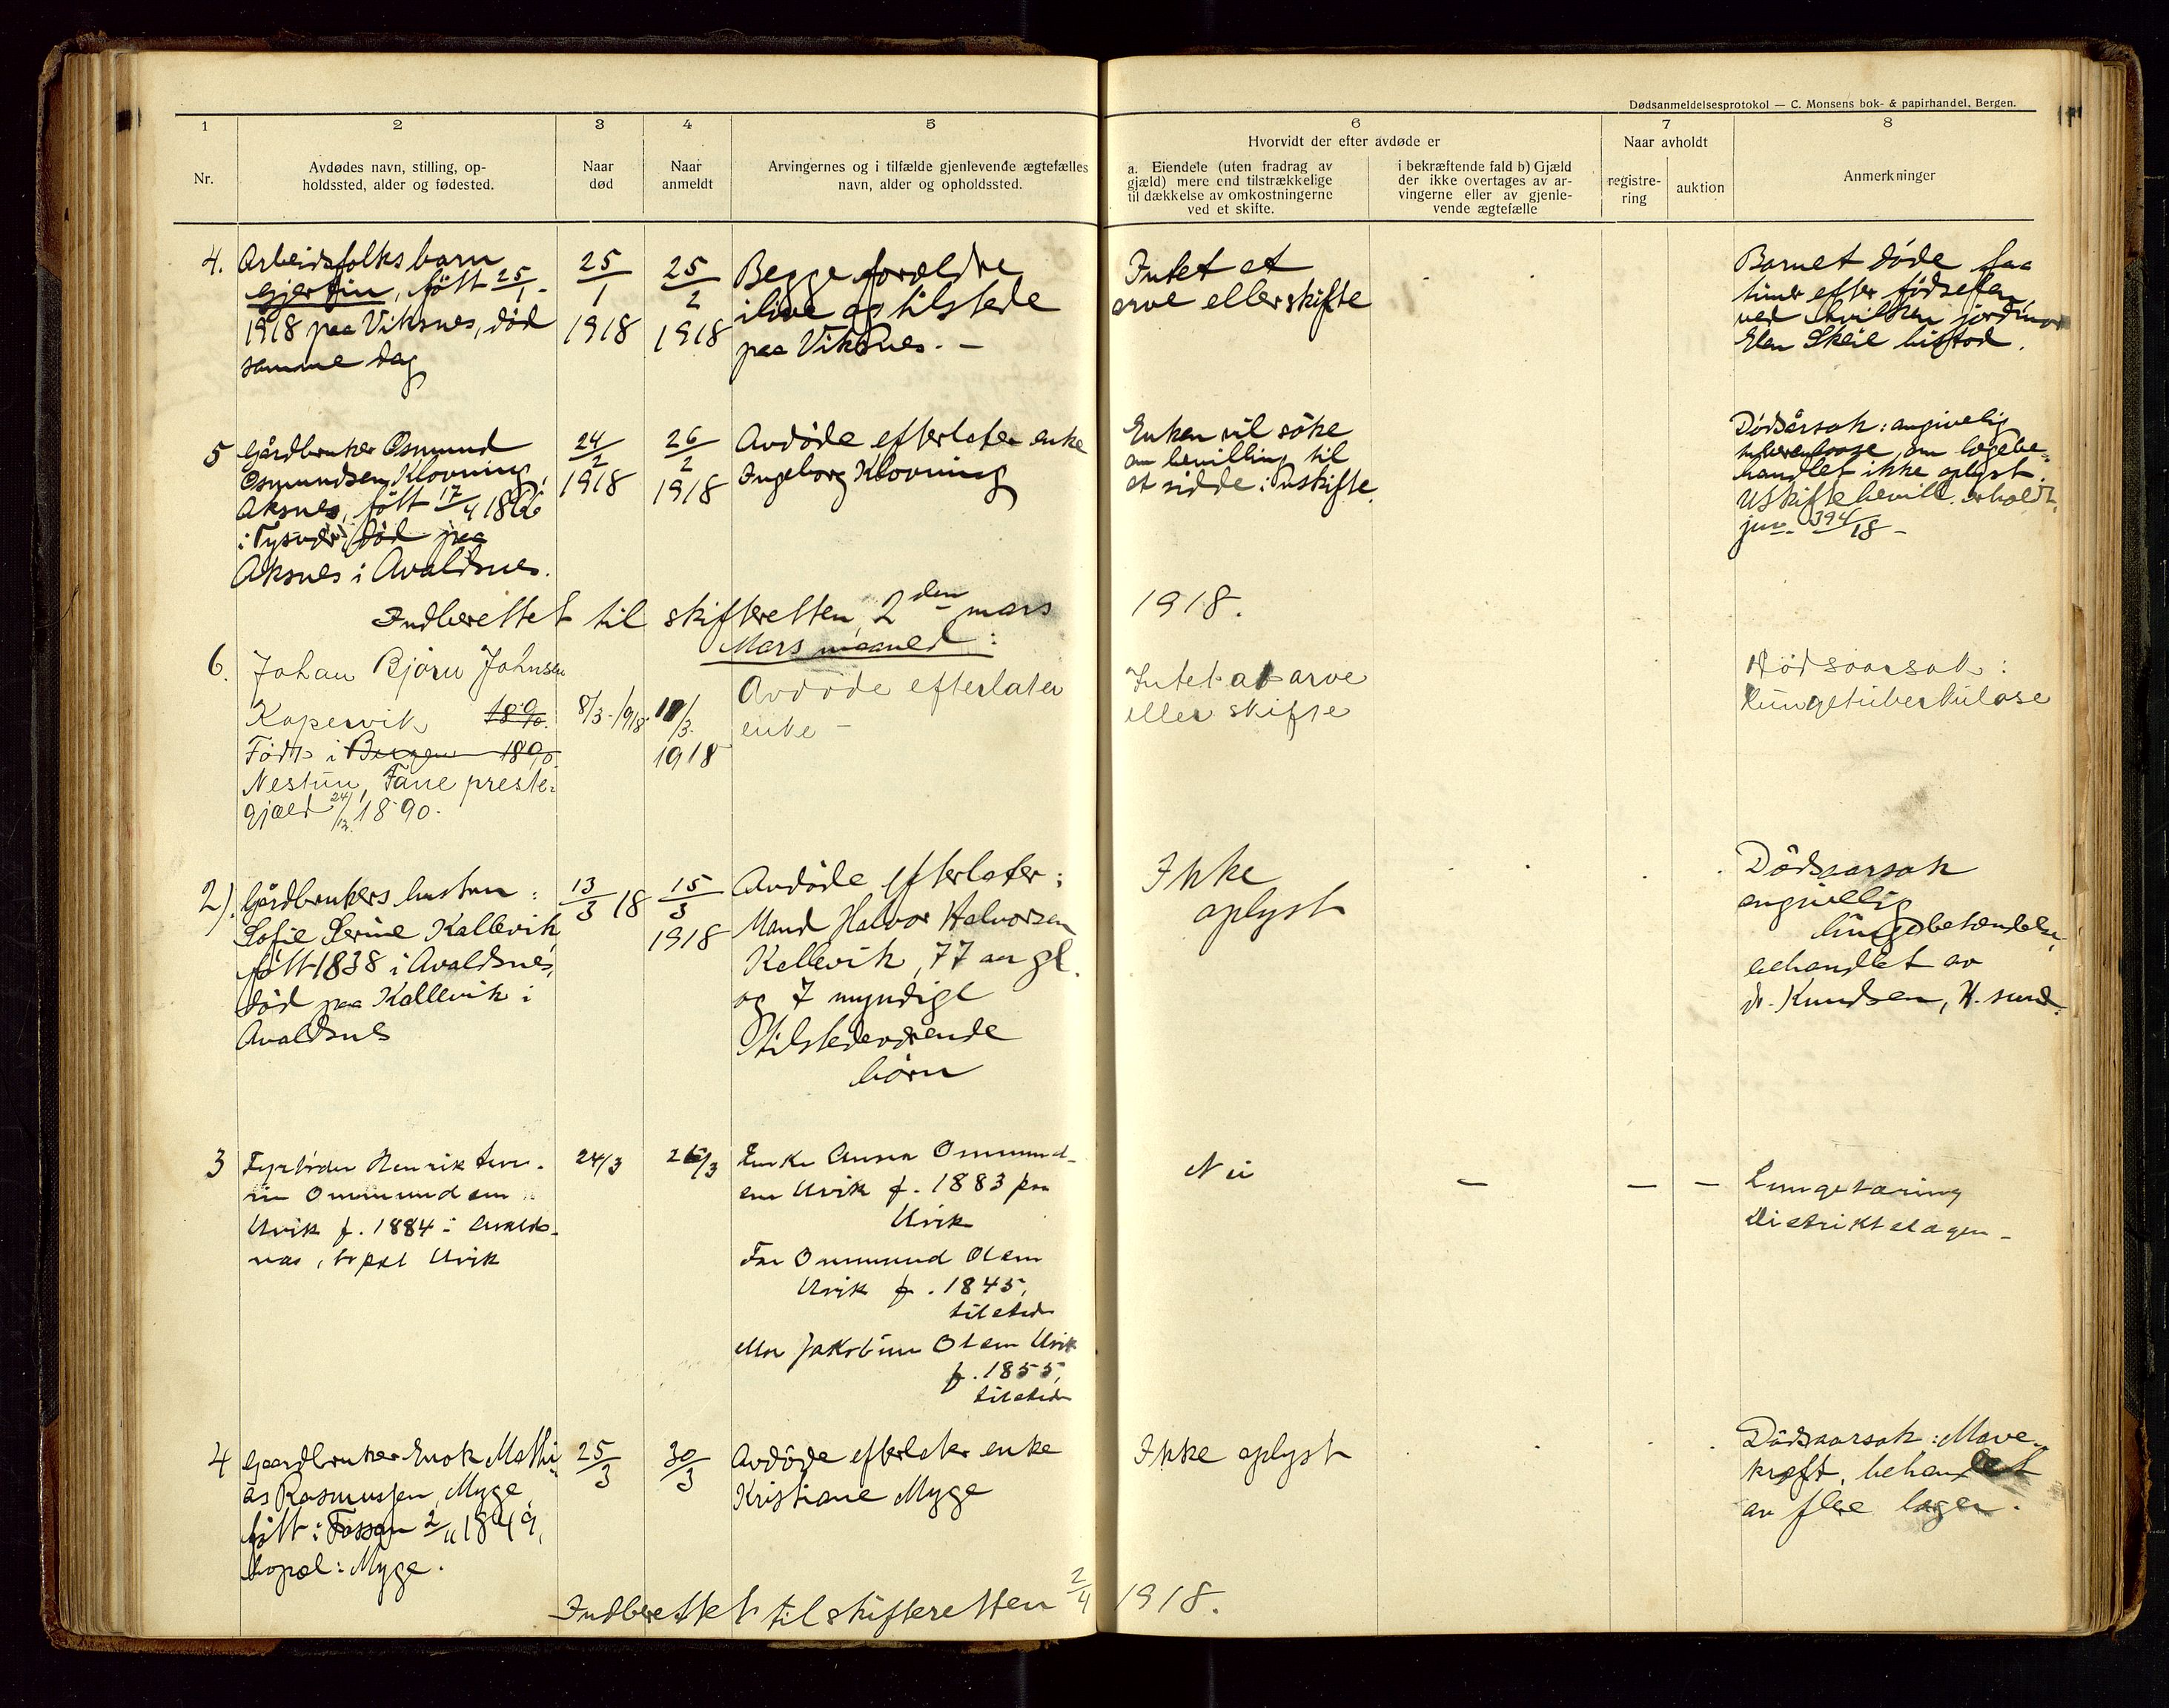 Dødsanmeldelsesprotokol — C. Monsens bok- & papirhandel, Bergen.
1
2
3
4
5
6
7
8
Nr.
Avdødes navn, stilling, op-
holdssted, alder og fødested.
Naar
død
Naar
anmeldt
Arvingernes og i tilfælde gjenlevende ægtefælles
navn, alder og opholdssted.
Hvorvidt der efter avdøde er
a. Eiendele (uten fradrag av
gjæld) mere end tilstrækkelige
til dækkelse av omkostningerne
ved et skifte.
i bekræftende fald b) Gjæld
der ikke overtages av ar-
vingerne eller av gjenle-
vende ægtefælle
Naar avholdt
registre-
ring
auktion
Anmerkninger
4.
Arbeidsfolks barn
født 25/1-
1918 paa Viksnes, død
samme dag
25/1
1918
25/2
1918
Begge forældre
ilive og tilstede
paa Viksnes. -
Intet at
arve eller skifte
Barnet døde faa
timer efter fødselen
ved hvilken jordmor
Elen Skeie bistod.
5
Gårdbruker Osmund
Osmundsen Klovning,
Aksnes, født 17/4 1866
i Tysvær, død paa
Aksnes i Avaldsnes.
24/2
1918
26/2
1918
Avdøde efterlater enke
Ingeborg Klovning
Enken vil søke
om bevilling til
at sidde i uskifte.
Dødsårsak: angivelig
tuberkulose, om lægebe-
handlet ikke oplyst.
Uskiftebevill. erholdt
jur. 394/18 -
Indberettet til skifteretten, 2den mars
1918.
Mars maaned:
6.
Johan Bjørn Johnsen
Kopervik 1890.
Født i Bergen 1890.
Nestun, Fane preste-
gjæld 24/12. 1890.
8/3-1918
11/3.
1918
Avdøde efterlater
enke -
Intet at arve
eller skifte
Dødsaarsak:
Lungetuberkulose
2).
Gårdbrukers hustru:
Sofie Serine Kallevik,
født 1838 i Avaldsnes,
død paa Kallevik i
Avaldsnes
13/3 18
15/3
1918
Avdøde efterlater:
Mand Halvor Halvorsen
Kallevik, 77 aar gl.
og 7 myndige
tilstedeværende
børn
Ikke
oplyst
Dødsaarsak
angivelig
lungebetændelse,
behandlet av
dr. Knudsen, H.sund.
3
Fyrbøder Henrik
Ommundsen
Utvik f. 1884 i Avalds-
nes, bopæl Utvik
24/3
26/3
Enke Anna Ommund-
sen Utvik f. 1883 paa
Utvik
Far Ommund Olsen
Utvik f. 1845,
tilstede
Mor Jakobine Olsen Utvik
f. 1855,
tilstede
Nei
—
—
—
Lungetæring
Distriktslægen -
4
Gaardbruker Enok Mathi-
as Rasmussen, Myge
født i Fossan 2/11 1849,
bopæl: Myge.
25/3
30/3
Avdøde efterlater enke
Kristiane Myge
Ikke oplyst
Dødsaarsak: Mave-
kræft, behandlet
av flere læger.
Indberettet til skifteretten 2/4
1918.